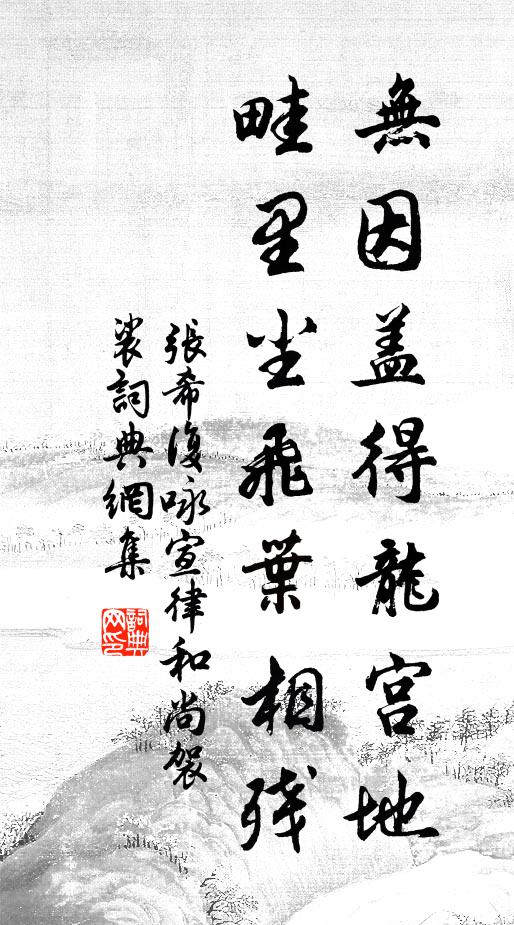 無因盖得龍宮地
畦里尘飛葉相残
張希復咏宣律和尚袈
裟詞典網集
詞典网印